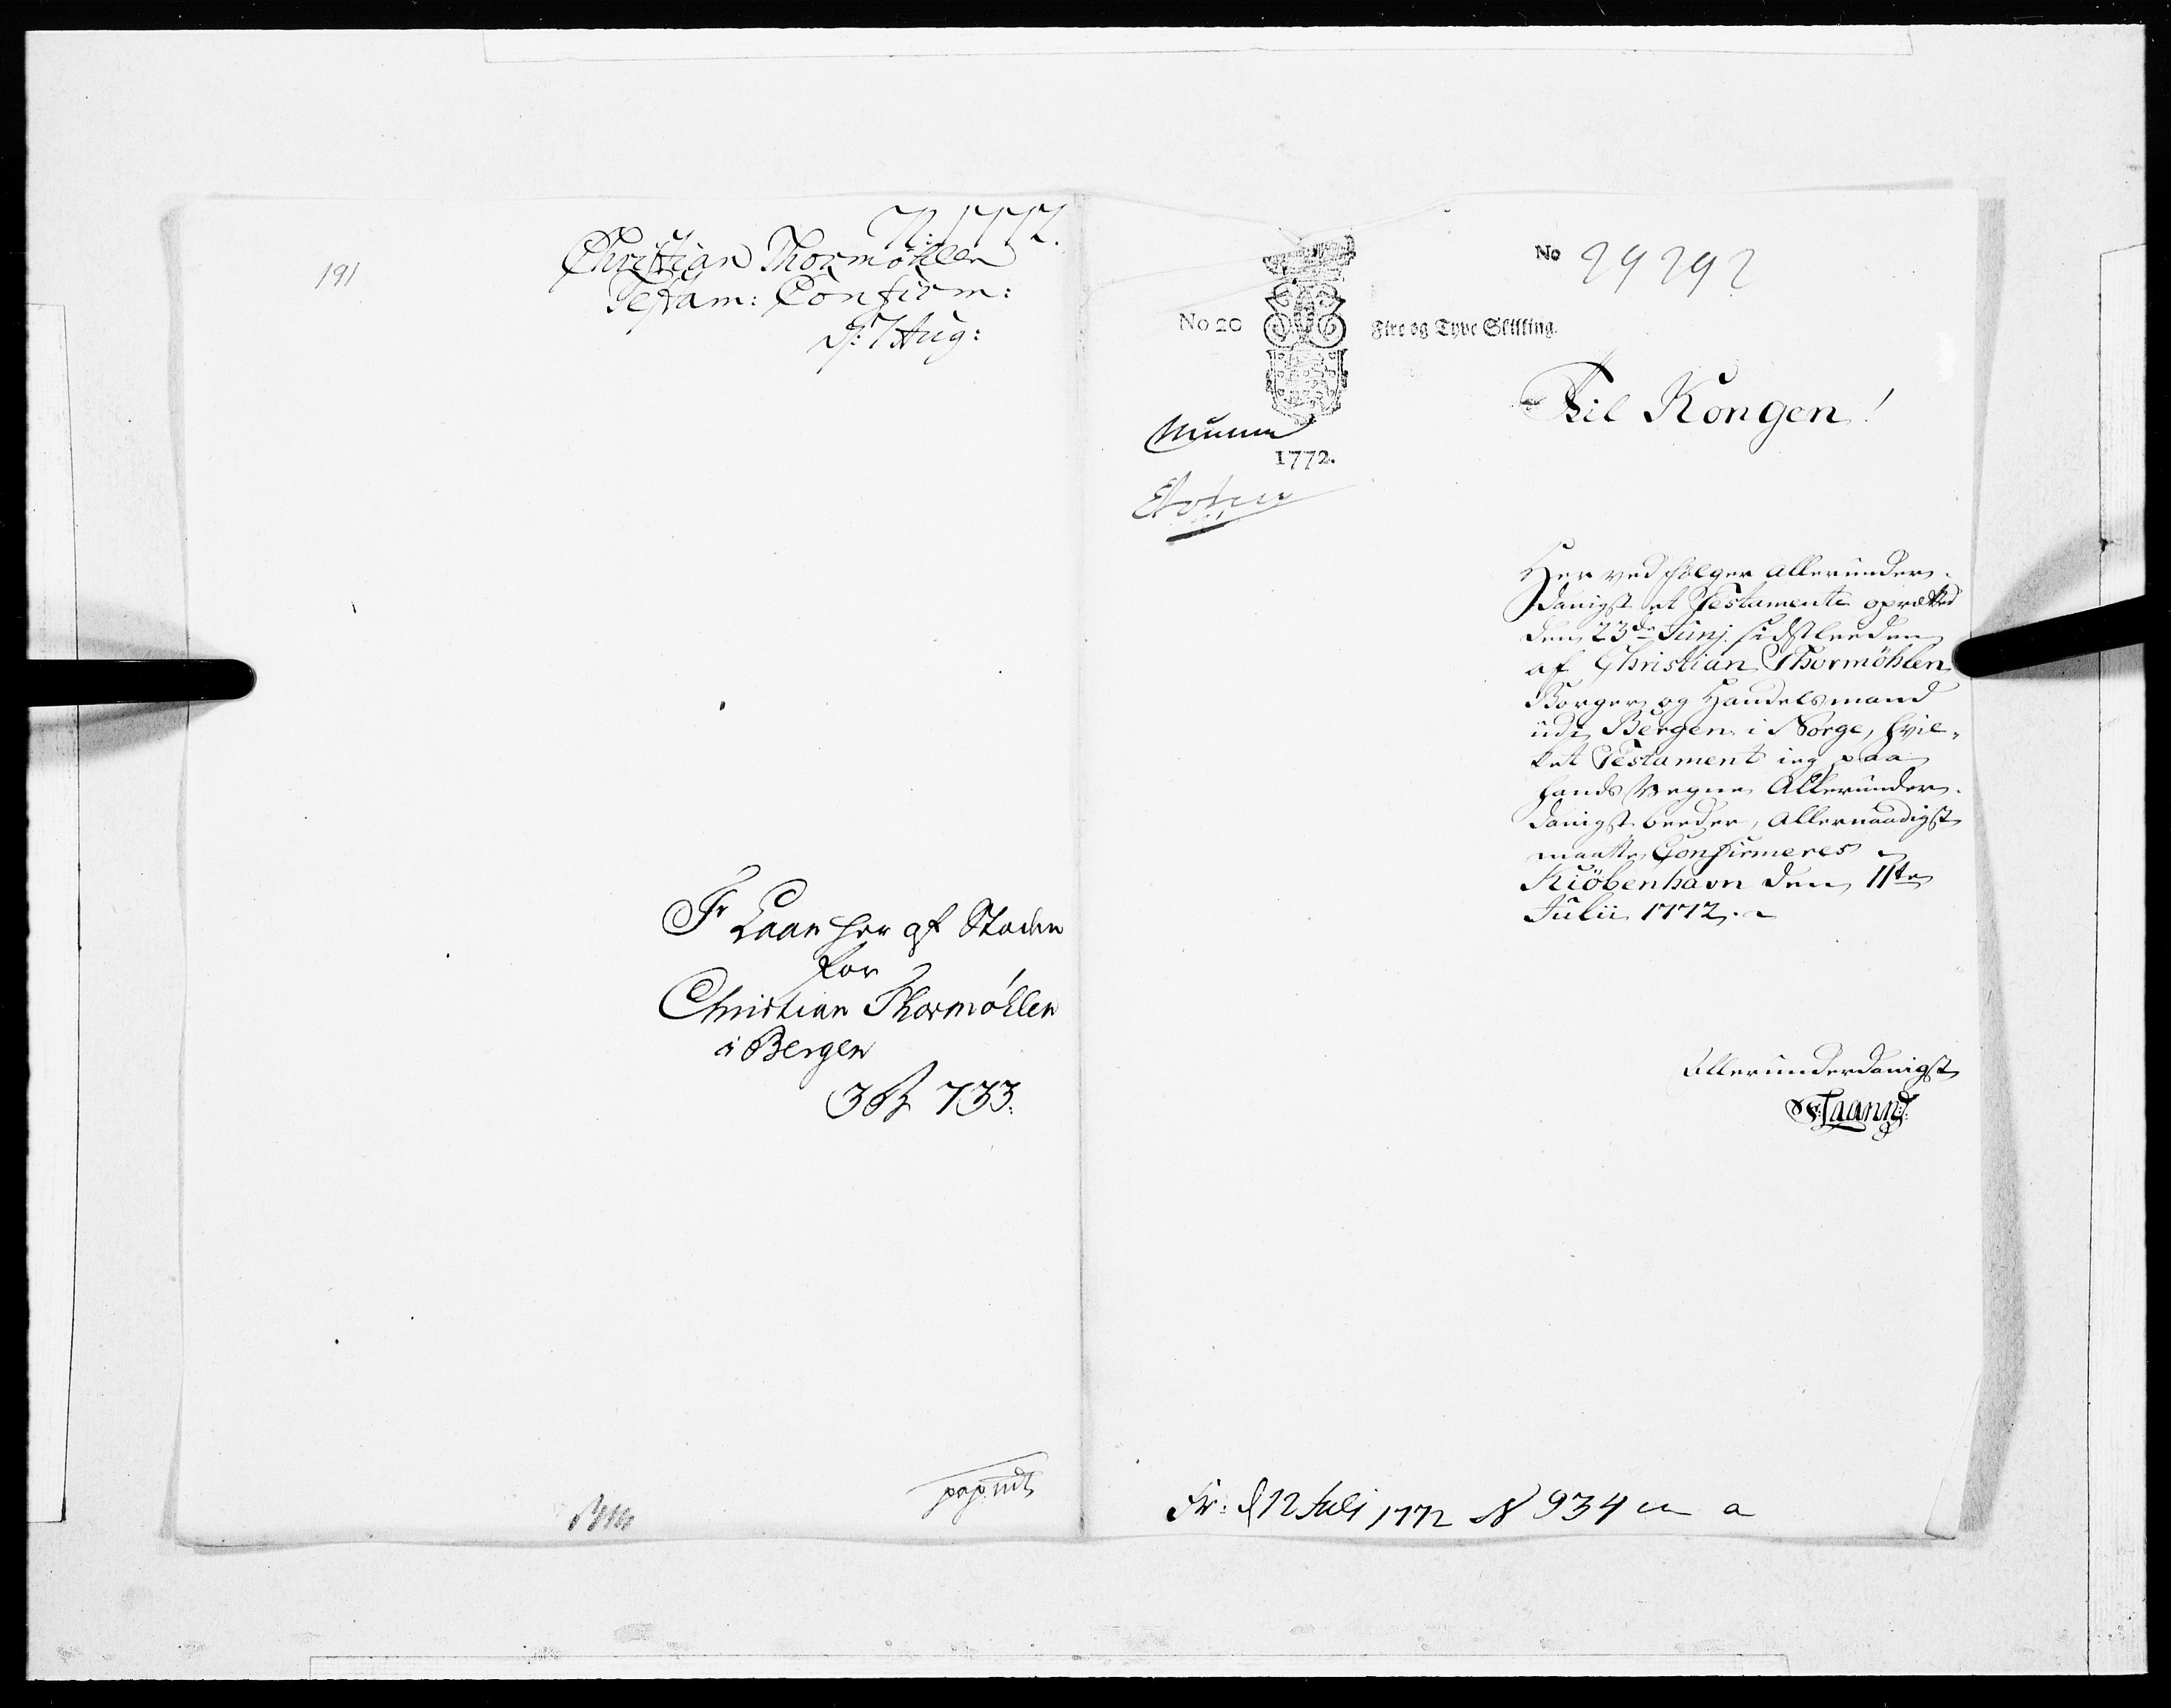 N: 1772.
Christian Thormöhlen
Testam: Confirm:
D: 7 Aug:
191
Fr Laan her af Staden
for
Christian Thormøhlen
i Bergen
3 B 733.
No 29292
No 20 Fire og Tyve Skilling.
1772.
Til Kongen!
Her ved følger allerunder-
danigst et Testamente oprætted
den 23de Junj. sidstleeden
af Christian Thormöhlen
Borger og Handelsmand
udi Bergen i Norge, hvil-
ket Testament ieg paa
hands Vegne Allerunder-
danigst beeder, Allernaadigst
maatte Confirmeres
Kiöbenhavn den 11te
Julii 1772.
Allerunderdanigst
F: Laann
Fr: d 12 Juli 1772 N 934 a